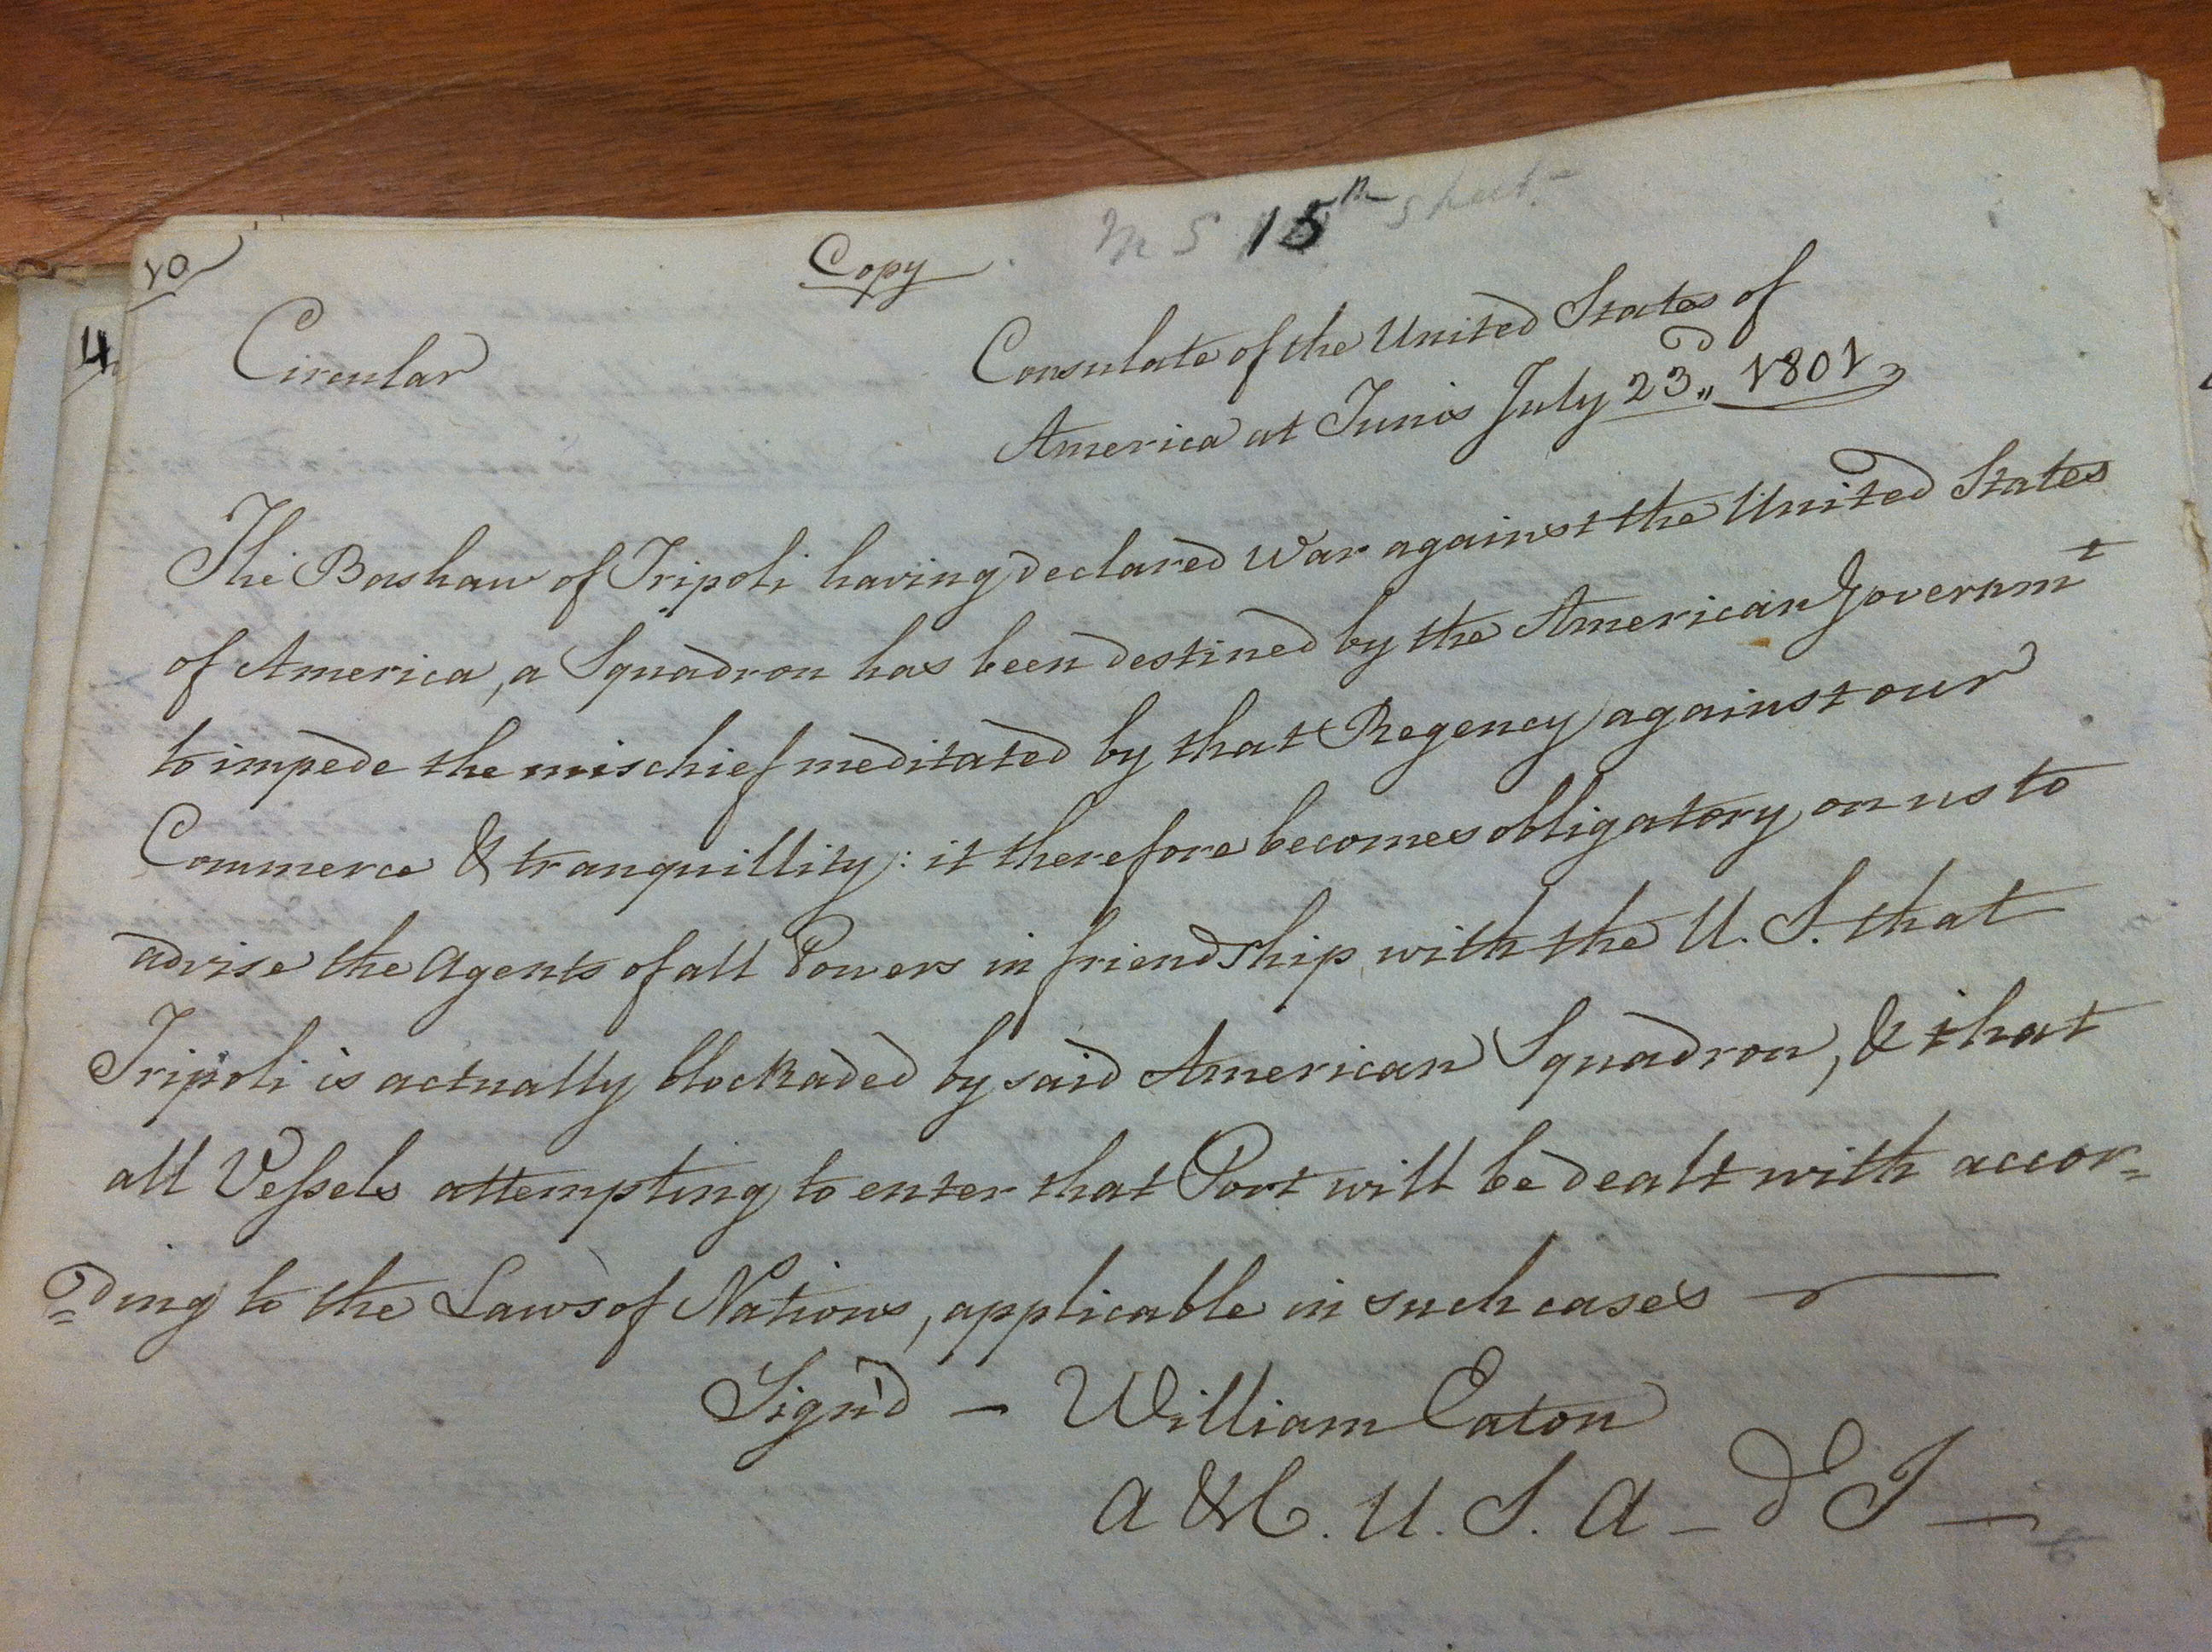 10
Copy
MS 15th sheet
4
Circular
Consulate of the United States of
America at Tunis July 23d,, 1801
The Bashaw of Tripoli having declared War against the United States
of America, a Squadron has been destined by the American Governmt
to impede the mischief meditated by that Regency against our
Commerce & tranquillity: it therefore becomes obligatory on us to
advise the Agents of all Powers in friendship with the U. S. that
Tripoli is actually blockaded by said American Squadron, & that
all Vessels attempting to enter that Port will be dealt with accor=
=ding to the Laws of Nations, applicable in such cases —
Sign'd — William Eaton
A & C. U. S. A — d T —